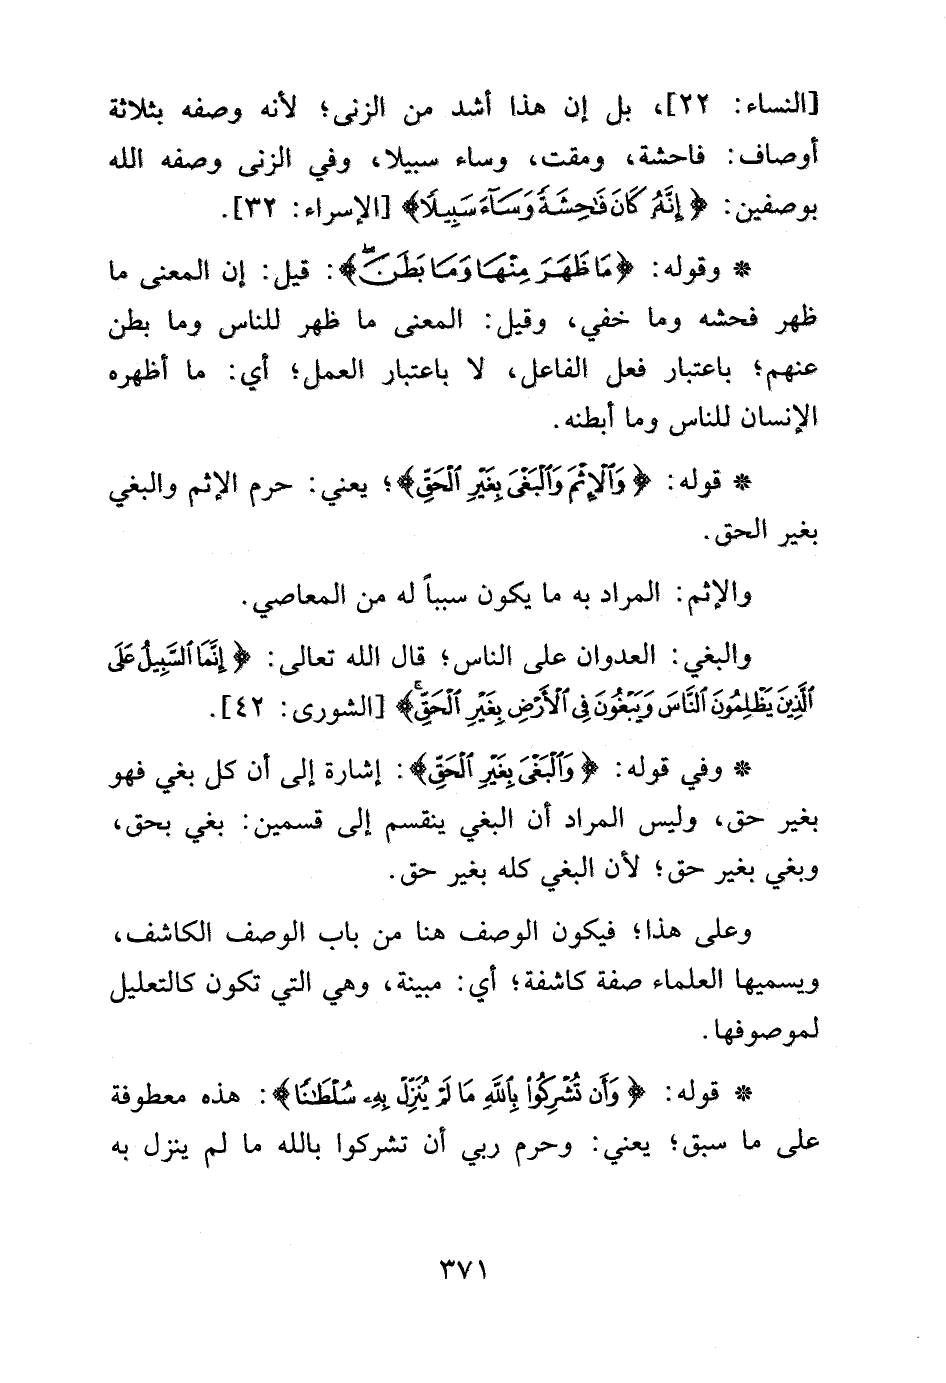 [النساء: ٢٢]، بل إن هذا أشد من الزنى؛ لأنه وصفه بثلاثة
أوصاف: فاحشة، ومقت، وساء سبيلا، وفي الزنى وصفه الله
بوصفين: ﴿إِنَّهُۥ كَانَ فَٰحِشَةً وَسَآءَ سَبِيلًا﴾ [الإسراء: ٣٢].
* وقوله: ﴿مَا ظَهَرَ مِنْهَا وَمَا بَطَنَۖ﴾: قيل: إن المعنى ما
ظهر فحشه وما خفي، وقيل: المعنى ما ظهر للناس وما بطن
عنهم؛ باعتبار فعل الفاعل، لا باعتبار العمل؛ أي: ما أظهره
الإنسان للناس وما أبطنه.
* قوله: ﴿وَٱلْإِثْمَ وَٱلْبَغْىَ بِغَيْرِ ٱلْحَقِّ﴾؛ يعني: حرم الإثم والبغي
بغير الحق.
والإثم: المراد به ما يكون سبباً له من المعاصي.
والبغي: العدوان على الناس؛ قال الله تعالى: ﴿إِنَّمَا ٱلسَّبِيلُ عَلَى
ٱلَّذِينَ يَظْلِمُونَ ٱلنَّاسَ وَيَبْغُونَ فِى ٱلْأَرْضِ بِغَيْرِ ٱلْحَقِّۚ﴾ [الشورى: ٤٢].
* وفي قوله: ﴿وَٱلْبَغْىَ بِغَيْرِ ٱلْحَقِّ﴾: إشارة إلى أن كل بغي فهو
بغير حق، وليس المراد أن البغي ينقسم إلى قسمين: بغي بحق،
وبغي بغير حق؛ لأن البغي كله بغير حق.
وعلى هذا؛ فيكون الوصف هنا من باب الوصف الكاشف،
ويسميها العلماء صفة كاشفة؛ أي: مبينة، وهي التي تكون كالتعليل
لموصوفها.
* قوله: ﴿وَأَن تُشْرِكُوا۟ بِٱللَّهِ مَا لَمْ يُنَزِّلْ بِهِۦ سُلْطَٰنًا﴾: هذه معطوفة
على ما سبق؛ يعني: وحرم ربي أن تشركوا بالله ما لم ينزل به
٣٧١